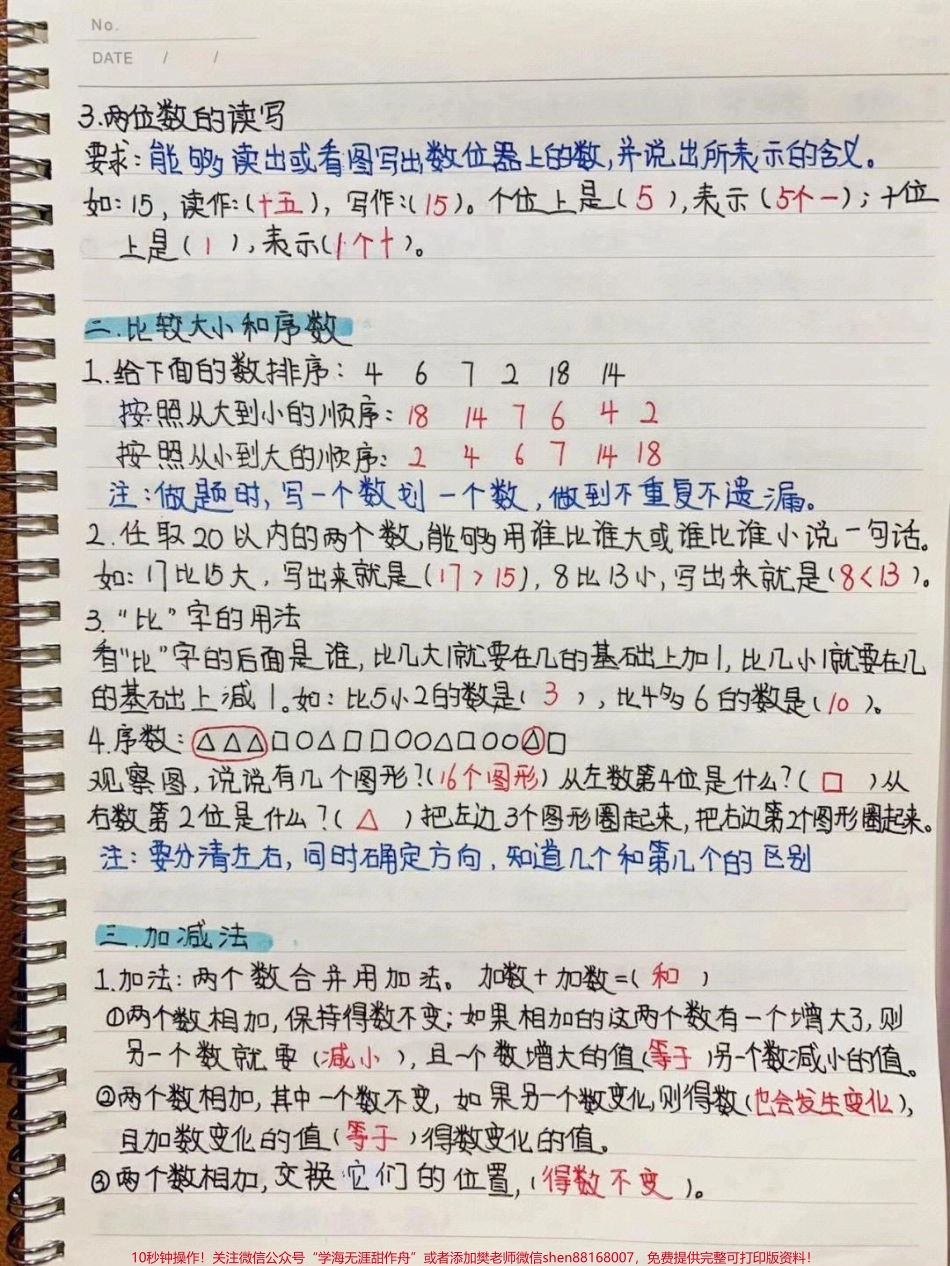 No.
DATE / /
3.两位数的读写
要求:能够读出或看图写出数位器上的数,并说出所表示的含义。
如:15,读作:(十五),写作:(15)。个位上是(5),表示(5个一);十位
上是(1),表示(1个十)。
二.比较大小和序数
1.给下面的数排序: 4 6 7 2 18 14
按照从大到小的顺序: 18 14 7 6 4 2
按照从小到大的顺序: 2 4 6 7 14 18
注:做题时,写一个数划一个数,做到不重复不遗漏。
2.任取20以内的两个数,能够用谁比谁大或谁比谁小说一句话。
如:17比15大,写出来就是(17>15),8比13小,写出来就是(8<13)。
3.“比”字的用法
看“比”字的后面是谁,比几大1就要在几的基础上加1,比几小1就要在几
的基础上减1。如:比5小2的数是(3),比4多6的数是(10)。
4.序数:△△△□○△□□○○△□○○△□
观察图,说说有几个图形?(16个图形)从左数第4位是什么?(□)从
右数第2位是什么?(△)把左边3个图形圈起来,把右边第2个图形圈起来。
注:要分清左右,同时确定方向,知道几个和第几个的区别
三.加减法
1.加法:两个数合并用加法。加数+加数=(和)
①两个数相加,保持得数不变;如果相加的这两个数有一个增大了,则
另一个数就要(减小),且一个数增大的值(等于)另一个数减小的值。
②两个数相加,其中一个数不变,如果另一个数变化,则得数(也会发生变化),
且加数变化的值(等于)得数变化的值。
③两个数相加,交换它们的位置,(得数不变)。
10秒钟操作!关注微信公众号“学海无涯甜作舟”或者添加樊老师微信shen88168007,免费提供完整可打印版资料!